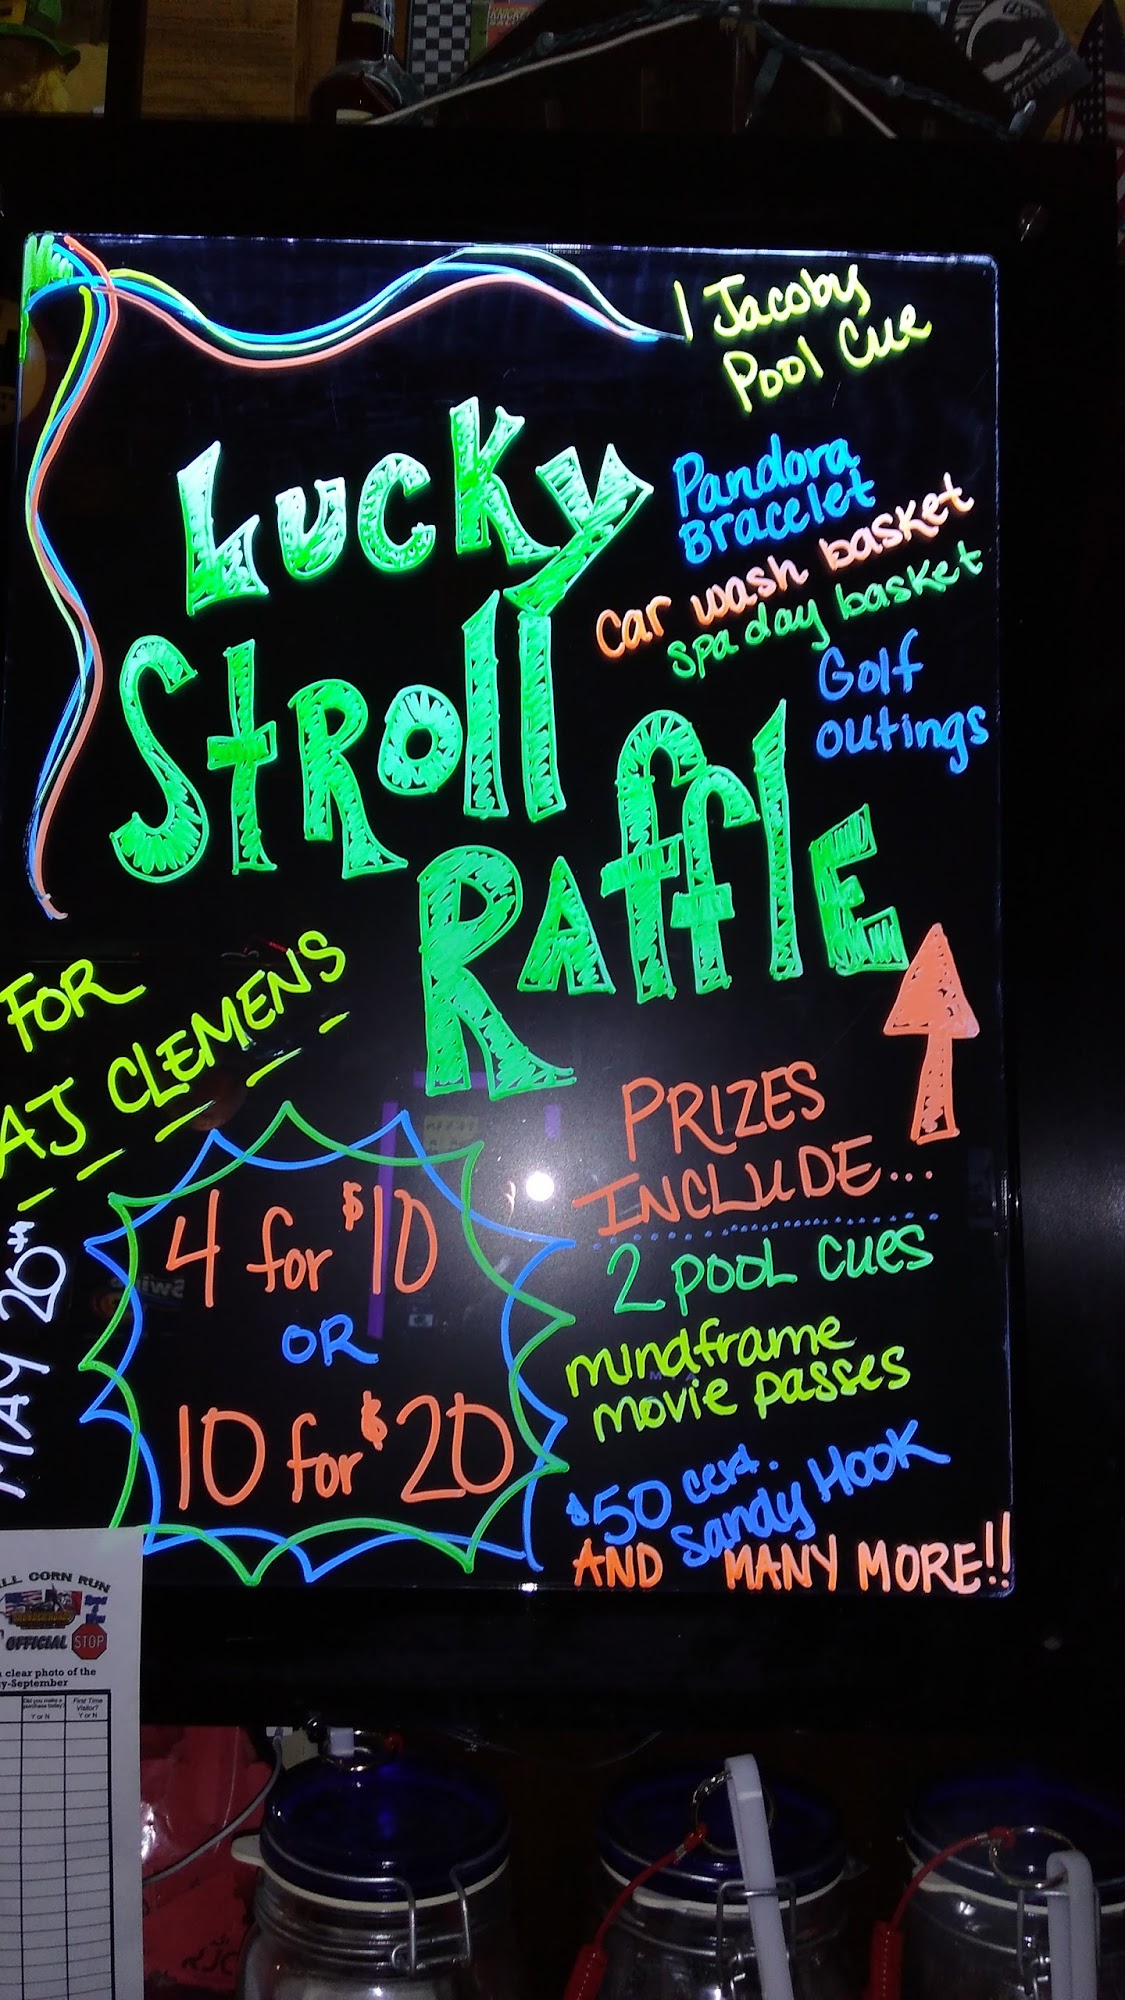 1 Jacoby
Pool Cue
Pandora
Bracelet
Car wash basket
spa day basket
Golf
outings
Lucky
Stroll
Raffle
FOR
AJ CLEMENS
MAY 20TH
4 for $10
OR
10 for $20
PRIZES
INCLUDE...
2 POOL CUES
mindframe
movie passes
$50 cert.
Sandy Hook
AND MANY MORE!!
ILL CORN RUN
OFFICIAL STOP
clear photo of the
y-September
Did you make a
purchase today?
Y or N
First Time
Visitor?
Y or N